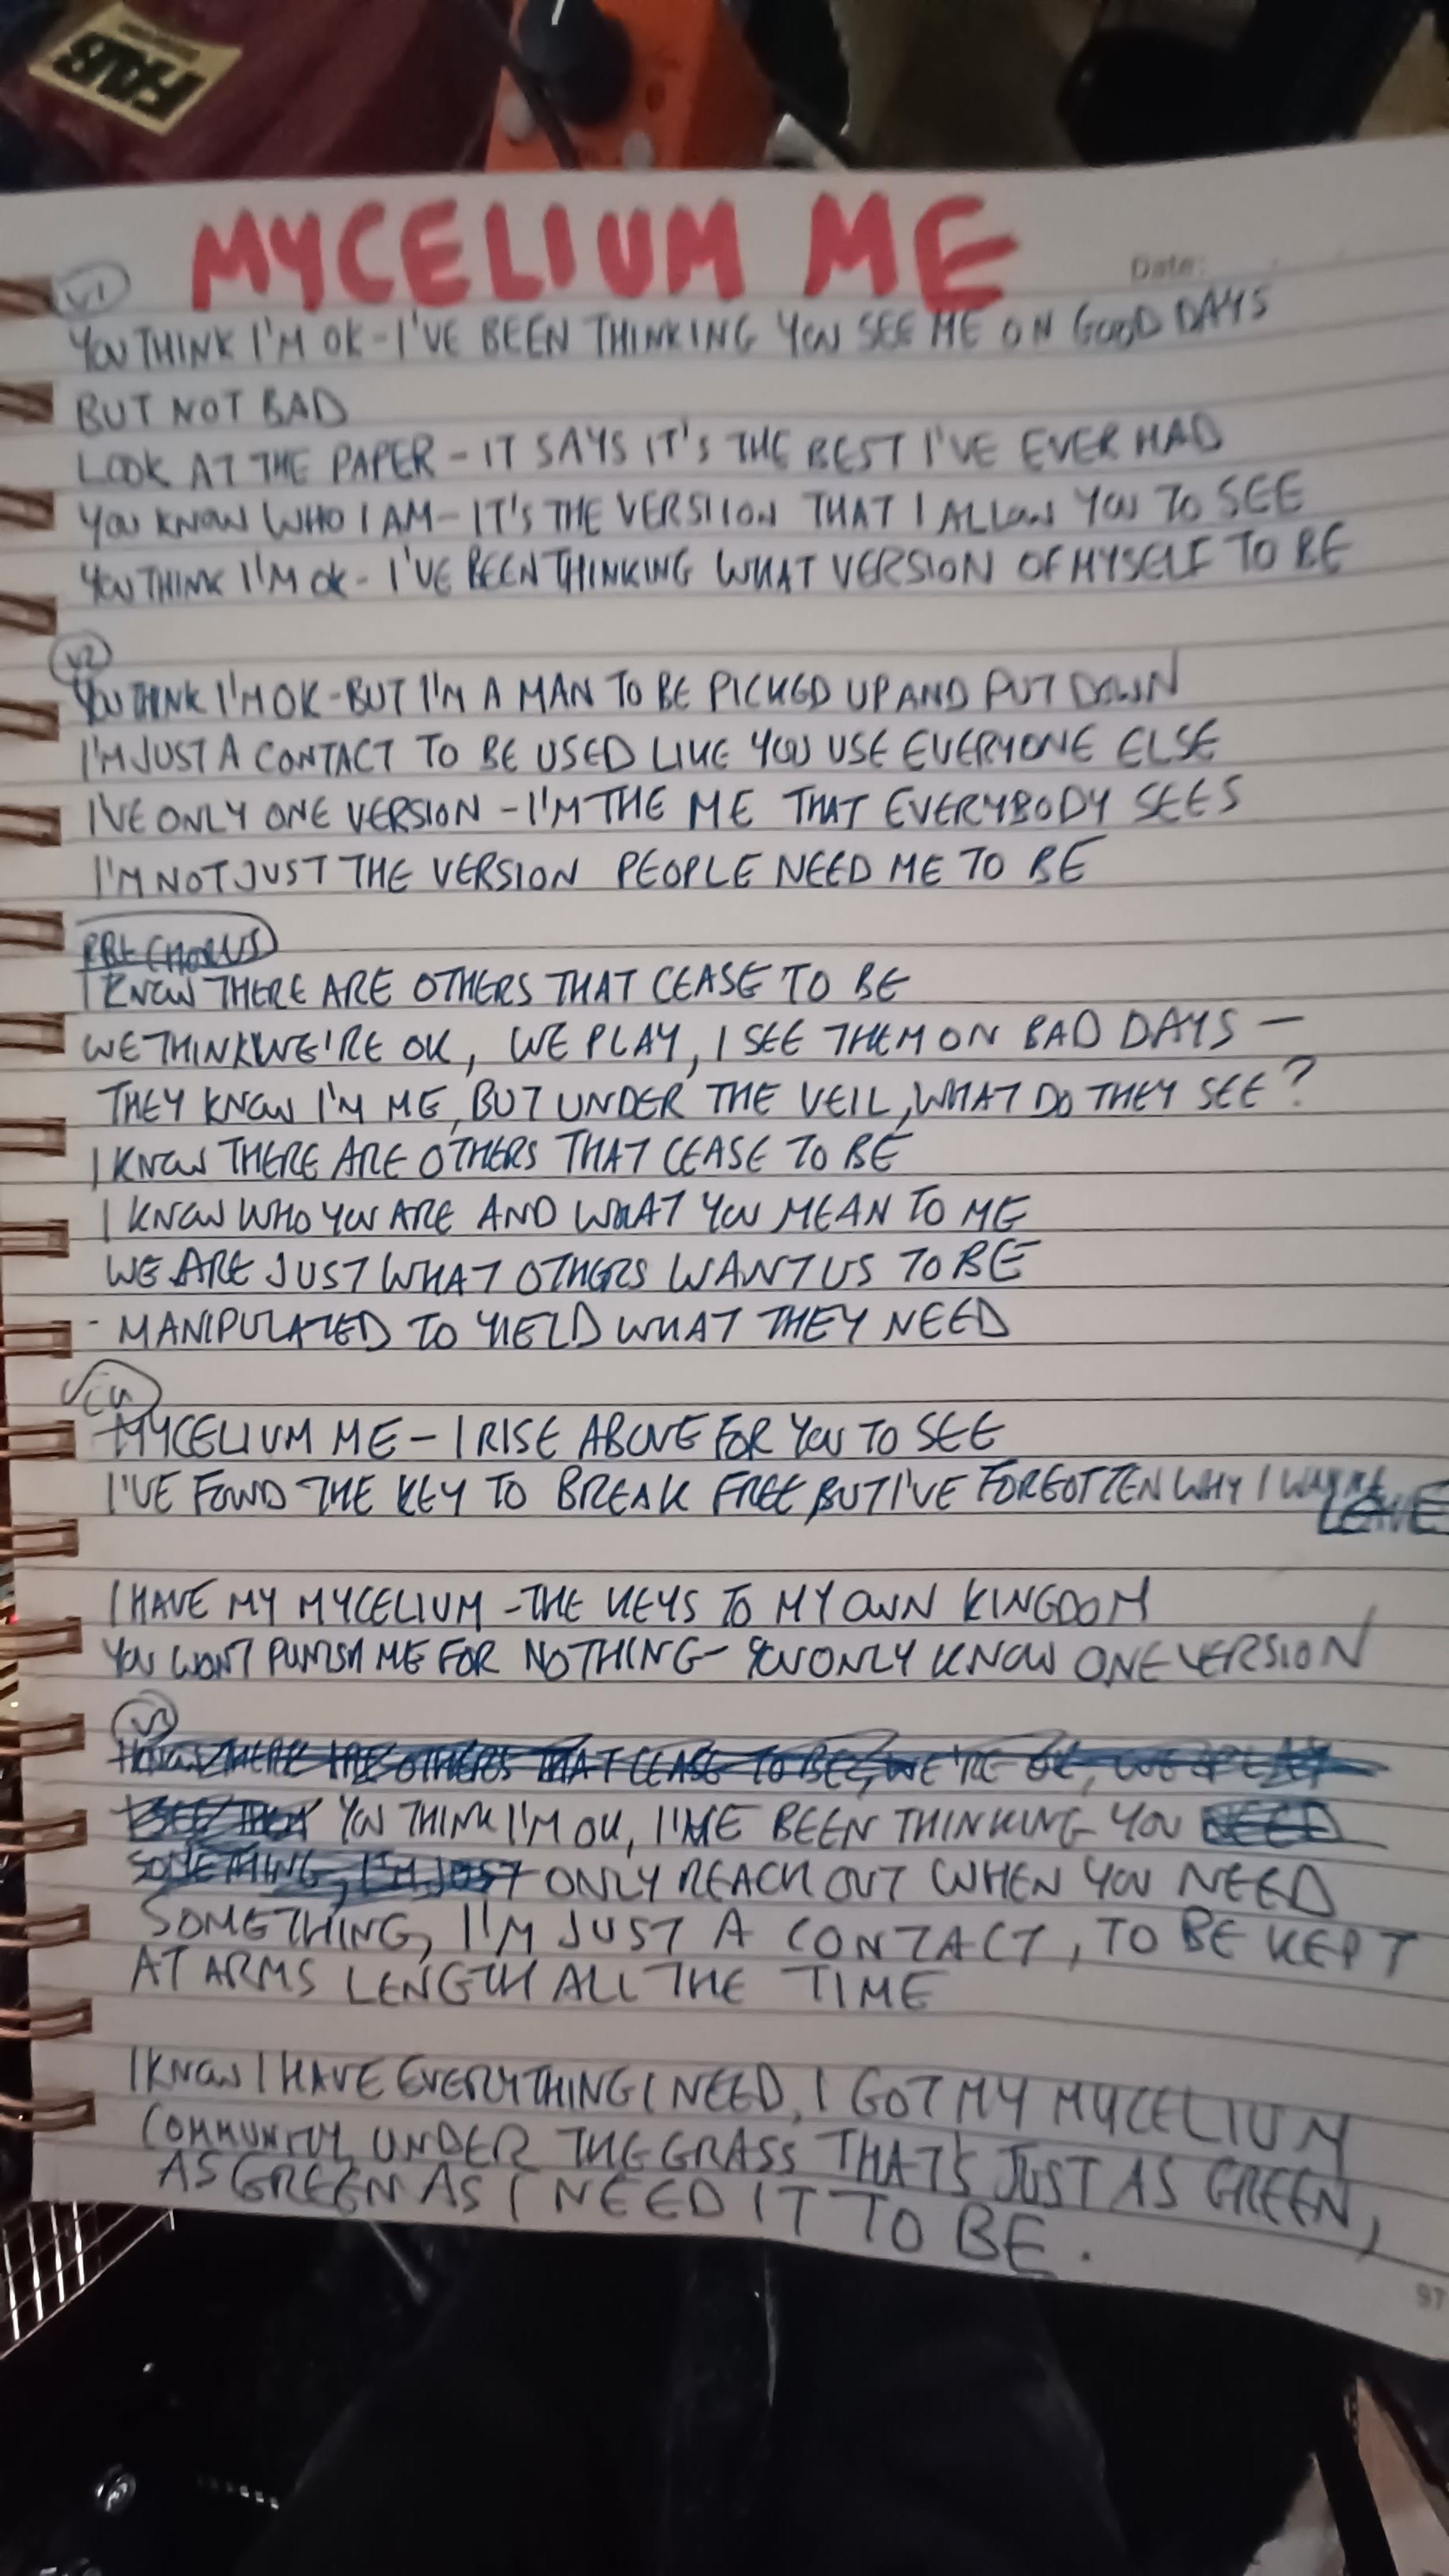 FRUIT
MYCELIUM ME
Date:
V1
YOU THINK I'M OK - I'VE BEEN THINKING YOU SEE ME ON GOOD DAYS
BUT NOT BAD
LOOK AT THE PAPER - IT SAYS IT'S THE BEST I'VE EVER HAD
YOU KNOW WHO I AM - IT'S THE VERSIION THAT I ALLOW YOU TO SEE
YOU THINK I'M OK - I'VE BEEN THINKING WHAT VERSION OF MYSELF TO BE
V2
YOU THINK I'M OK - BUT I'M A MAN TO BE PICKED UP AND PUT DOWN
I'M JUST A CONTACT TO BE USED LIKE YOU USE EVERYONE ELSE
I'VE ONLY ONE VERSION - I'M THE ME THAT EVERYBODY SEES
I'M NOT JUST THE VERSION PEOPLE NEED ME TO BE
PRE CHORUS
I KNOW THERE ARE OTHERS THAT CEASE TO BE
WE THINK WE'RE OK, WE PLAY, I SEE THEM ON BAD DAYS -
THEY KNOW I'M ME, BUT UNDER THE VEIL, WHAT DO THEY SEE?
I KNOW THERE ARE OTHERS THAT CEASE TO BE
I KNOW WHO YOU ARE AND WHAT YOU MEAN TO ME
WE ARE JUST WHAT OTHERS WANT US TO BE
- MANIPULATED TO YIELD WHAT THEY NEED
CH
MYCELIUM ME - I RISE ABOVE FOR YOU TO SEE
I'VE FOUND THE KEY TO BREAK FREE, BUT I'VE FORGOTTEN WHY I WANNA
LEAVE
I HAVE MY MYCELIUM - THE KEYS TO MY OWN KINGDOM
YOU WON'T PUNISH ME FOR NOTHING - YOU ONLY KNOW ONE VERSION
V3
I KNOW THERE ARE OTHERS THAT CEASE TO BE, WE'RE OK, WE PLAY
I SEE THEM YOU THINK I'M OK, I'VE BEEN THINKING YOU NEED
SOMETHING, I'M JUST ONLY REACH OUT WHEN YOU NEED
SOMETHING, I'M JUST A CONTACT, TO BE KEPT
AT ARMS LENGTH ALL THE TIME
I KNOW I HAVE EVERYTHING I NEED, I GOT MY MYCELIUM
COMMUNITY, UNDER THE GRASS THAT'S JUST AS GREEN,
AS GREEN AS I NEED IT TO BE.
97